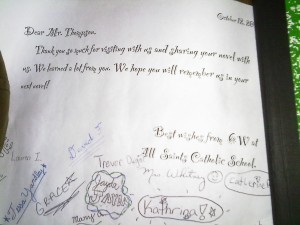 October
Dear Mr. Thompson,
Thank you so much for visiting with us and sharing your novel with
us. We learned a lot from you. We hope you will remember us in your
next novel!
Best wishes from 6W at
All Saints Catholic School.
Laura I.
David T
Trevor
GRACE
Jayda
Mrs. Whiting
Catherine
Manny
Kathryn